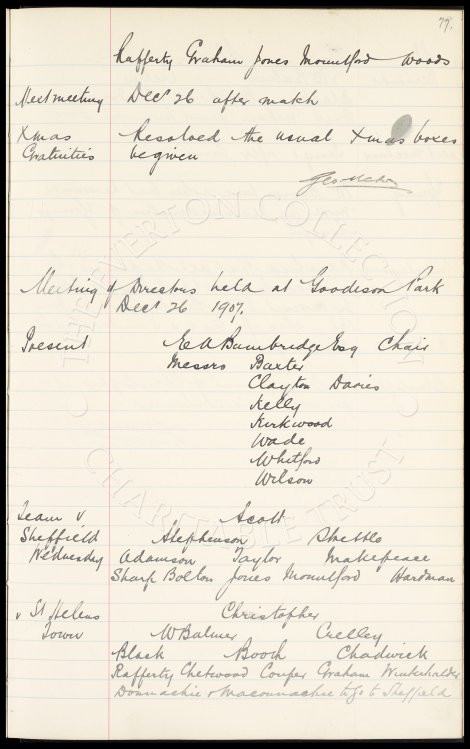 77.
Rafferty Graham Jones Mountford Woods
Next meeting Decr 26 after match
Xmas Resolved the usual Xmas boxes
Gratuities be given
Meeting of Directors held at Goodison Park
Decr 26 1907.
Present E A Bainbridge Esq Chair
Messrs Baxter
Clayton Davies
Kelly
Kirkwood
Wade
Whitford
Wilson
Team v Scott
Sheffield Stephenson Strettle
Wednesday Adamson Taylor Makepeace
Sharp Bolton Jones Mountford Hardman
v St Helens Christopher
Town W Balmer Crelley
Black Booth Chadwick
Rafferty Chetwood Couper Graham Winterhalder
Donnachie & Maconnachie to go to Sheffield
THE EVERTON COLLECTION
CHARITABLE TRUST